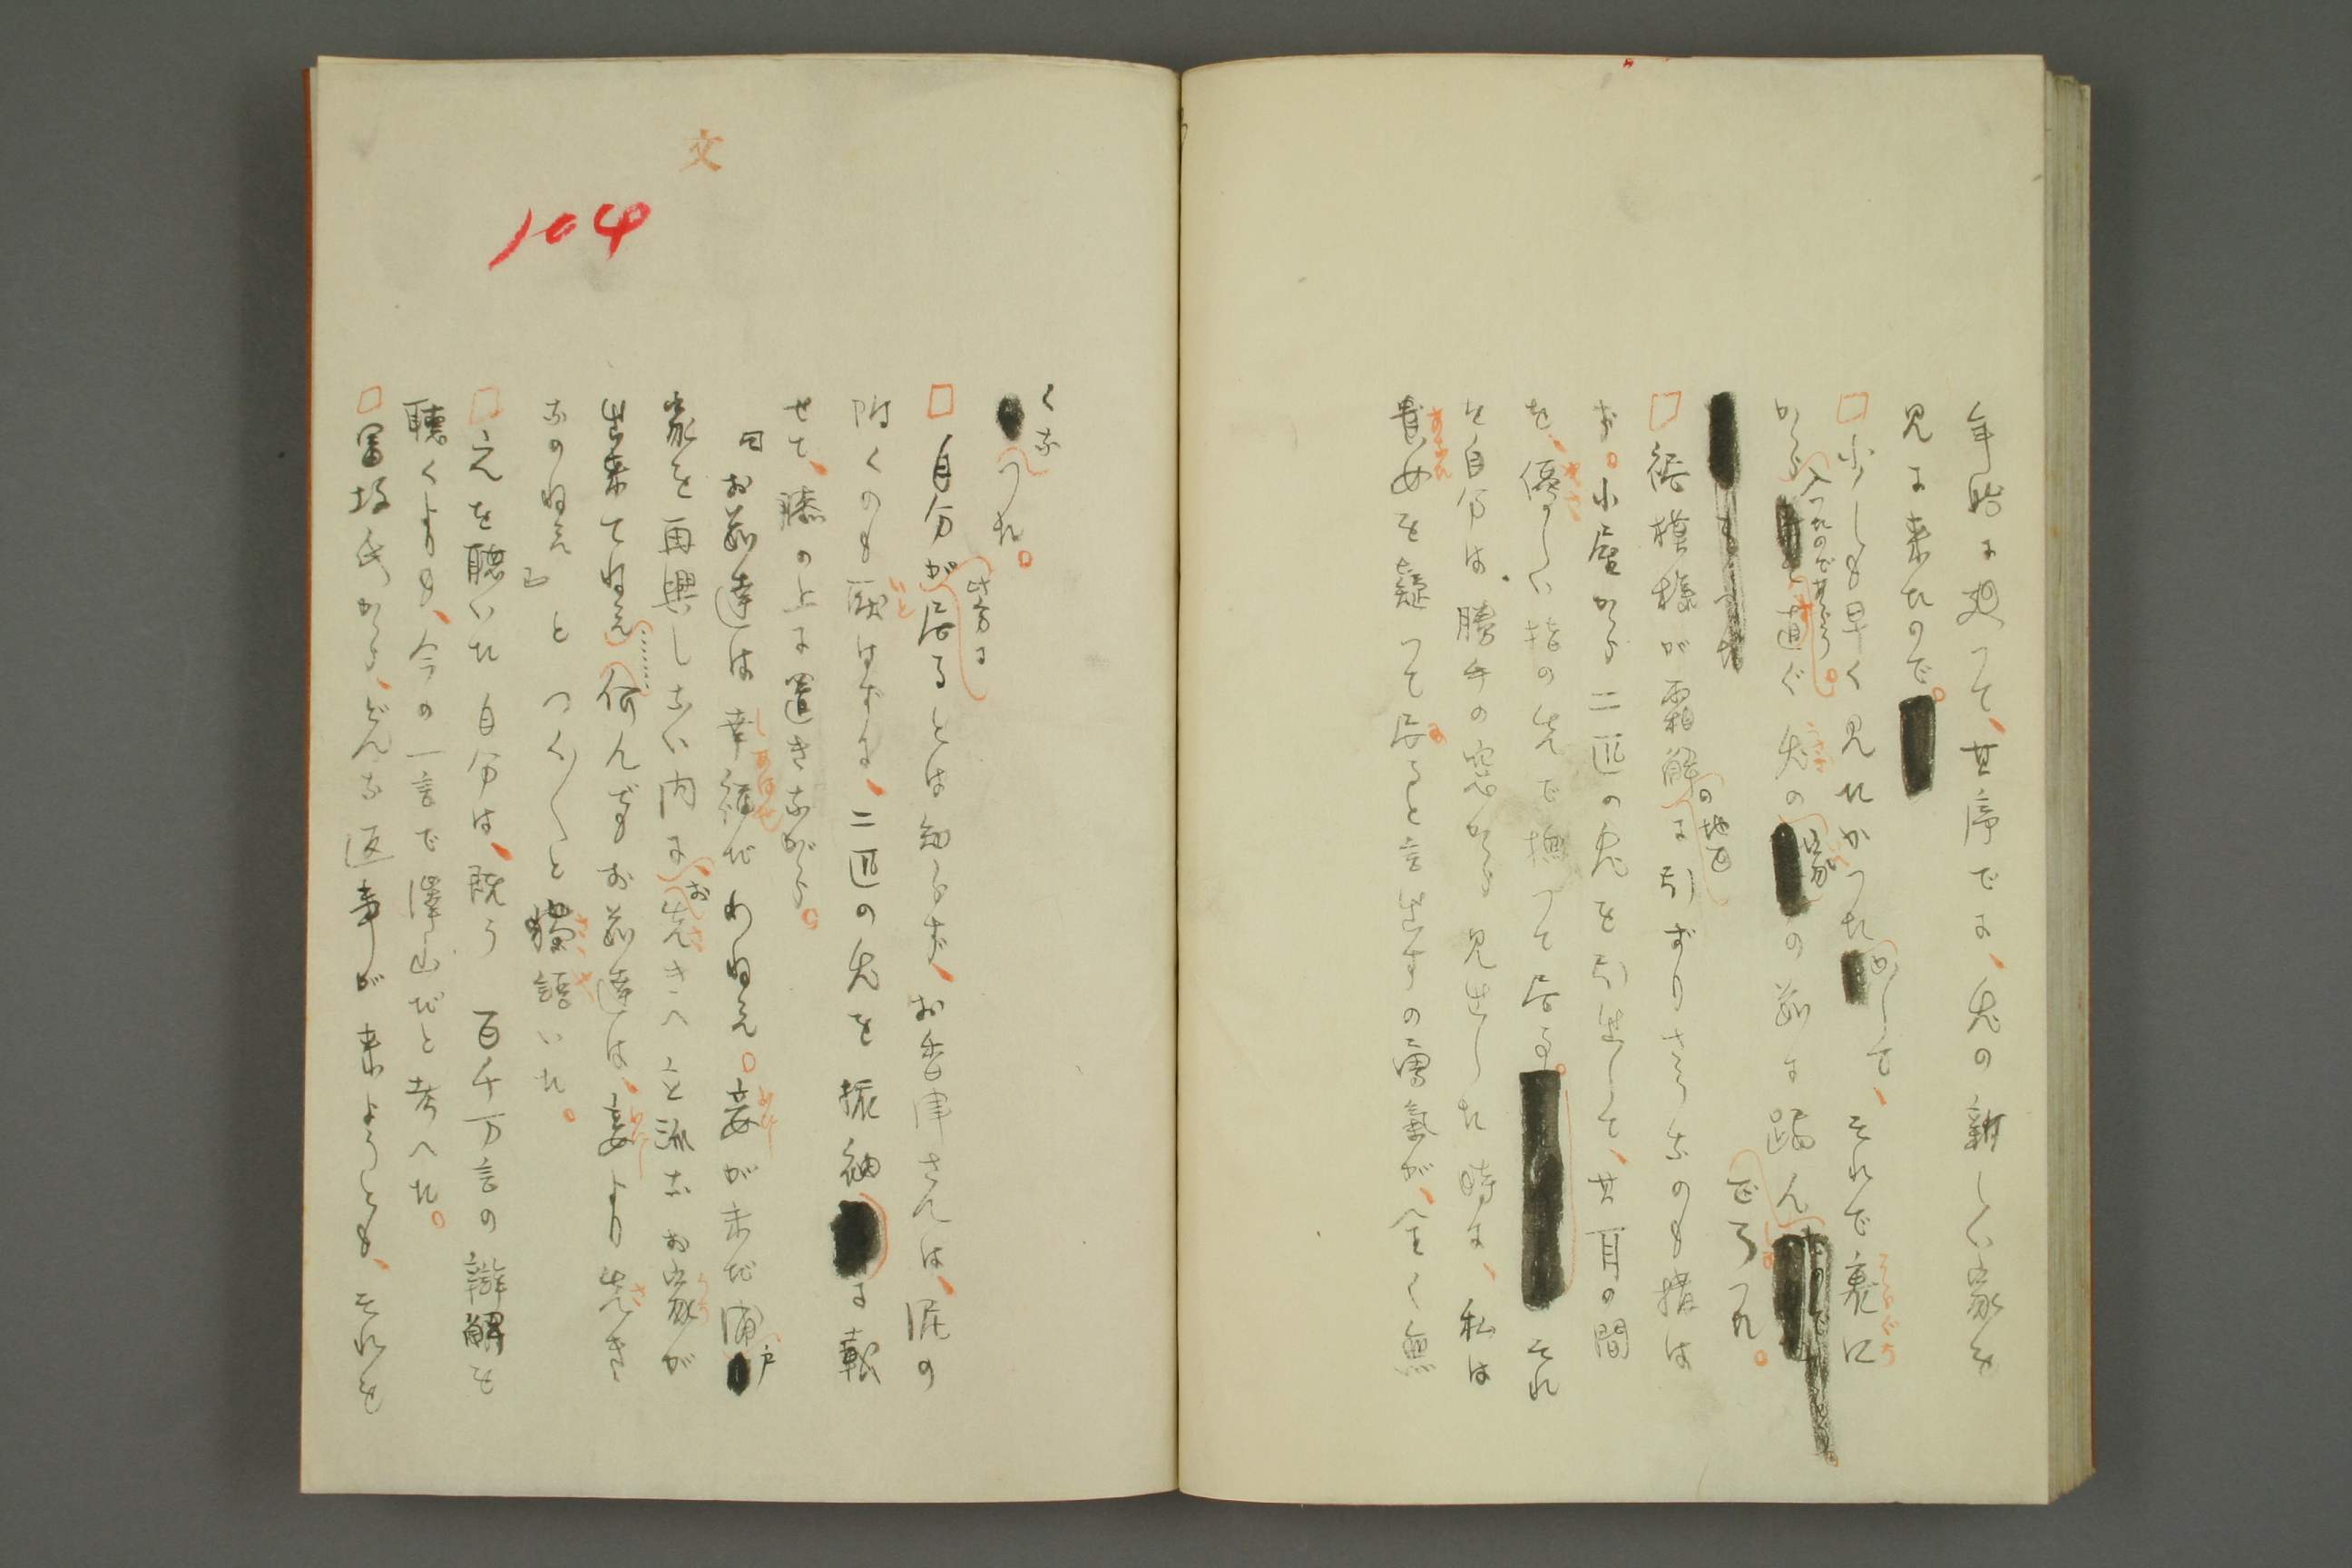 年始に廻つて、其序でに、兎の新しい家を
見に来たので。
□少しも早く見たかつたらしくて、それで裏口
から入つたのであらう。直ぐ兎の家の前に踞んでゐつた。
□裾模様が霜解の地面に引ずりさうなのも構は
ず。小屋から二匹の兎を引出して、其耳の間
を、優しい指の先で撫つて居る。それ
を自分は勝手の窓から見出した時に、私は
貴女を疑つて居ると言出すの勇氣が、全く無
くなつた。
□自分が此方に居るとは知らず、お香津さんは、泥の
附くのも厭はずに、二匹の兎を振袖に載
せて、膝の上に置きながら。
『お前達は幸福だわねえ。妾が未だ浦戸
家を再興しない内に、お先きへ立派なお家が
出来てねえ……何んでもお前達は、妾より先き
なのねえ』とつく〴〵と獨語いた。
□之を聽いた自分は、既う百千万言の辯解を
聽くよりも、今の一言で澤山だと考へた。
□冨坂氏から、どんな返事が来ようとも、それを
文
104